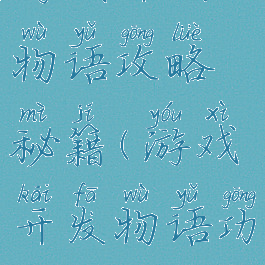 wù yǔ gōng lüè
物语攻略
mì jí yóu xì
秘籍(游戏
kāi fā wù yǔ gōng
开发物语功